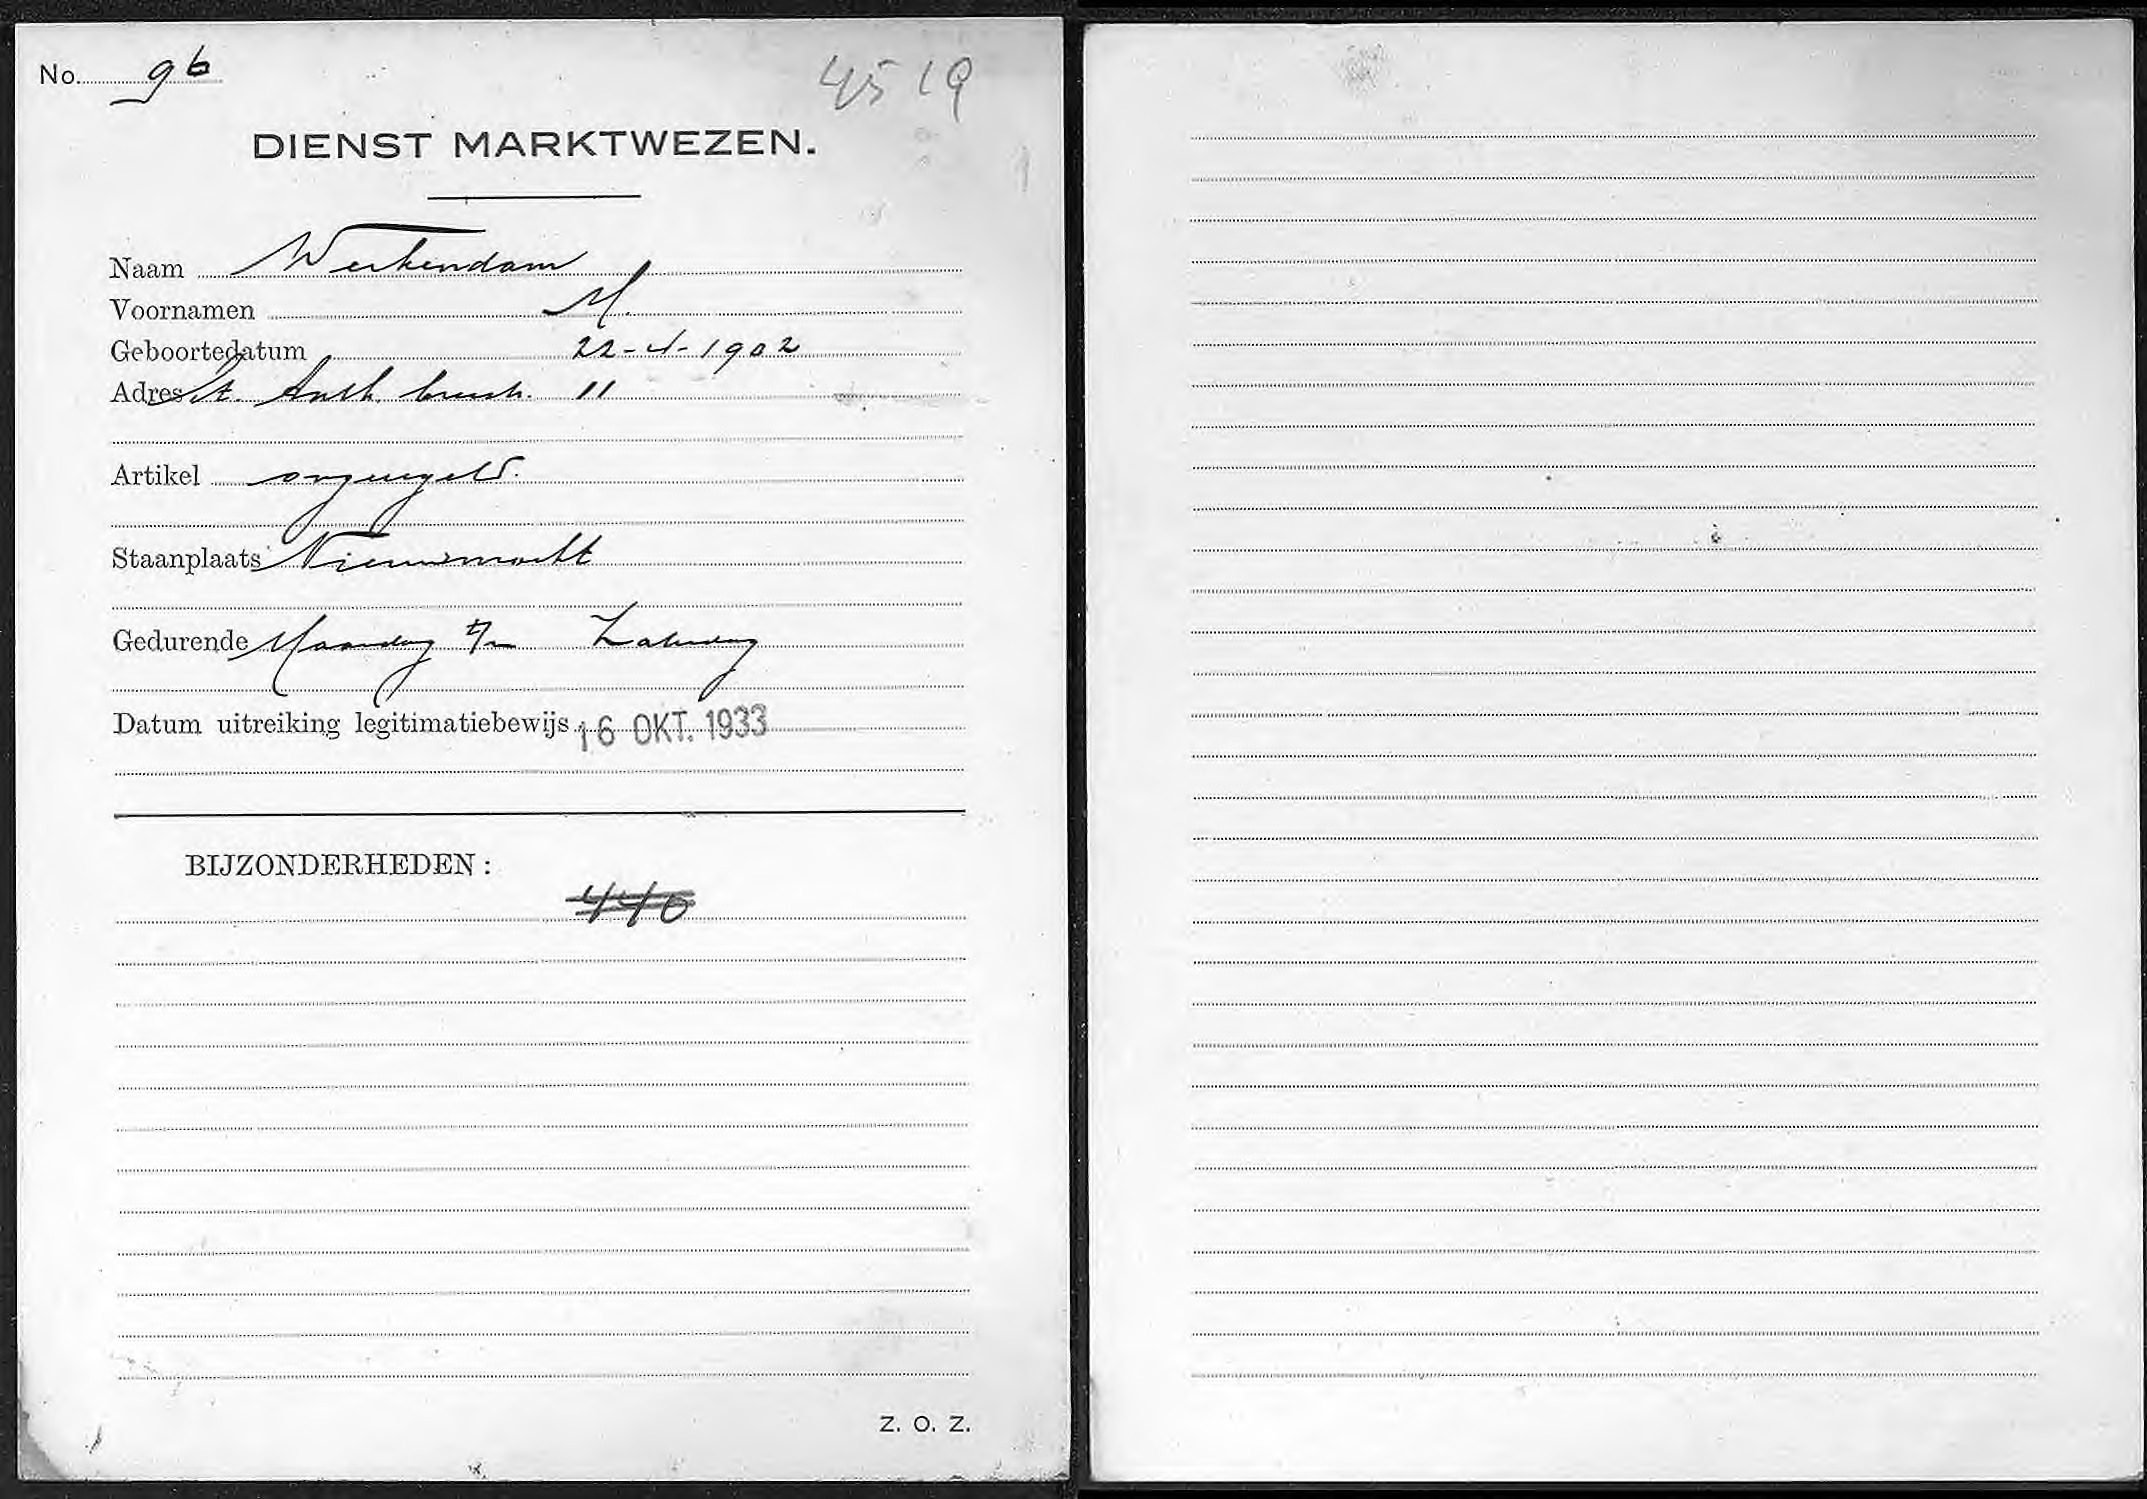 No. 96
4519
DIENST MARKTWEZEN.
Naam Werkendam
Voornamen M.
Geboortedatum 22-4-1902
Adres St. Anth. breestr. 11
Artikel ongeregeld.
Staanplaats Nieuwmarkt
Gedurende Maandag t/m Zaterdag
Datum uitreiking legitimatiebewijs 16 OKT. 1933
BIJZONDERHEDEN:
440
Z. O. Z.